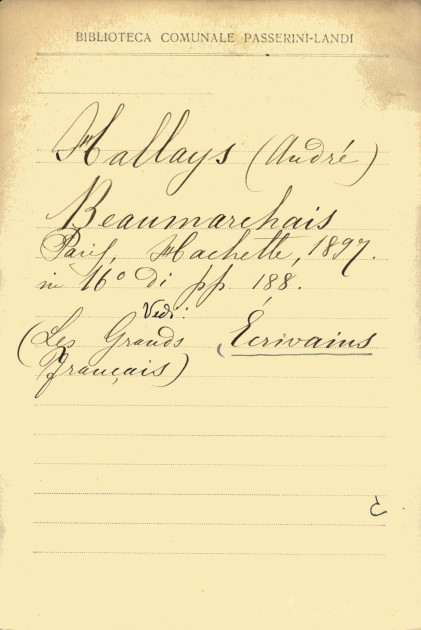 BIBLIOTECA COMUNALE PASSERINI-LANDI
Hallays (André)
Beaumarchais
Paris, Hachette, 1897.
in 16° di pp. 188.
Vedi:
(Les Grands Écrivains
français)